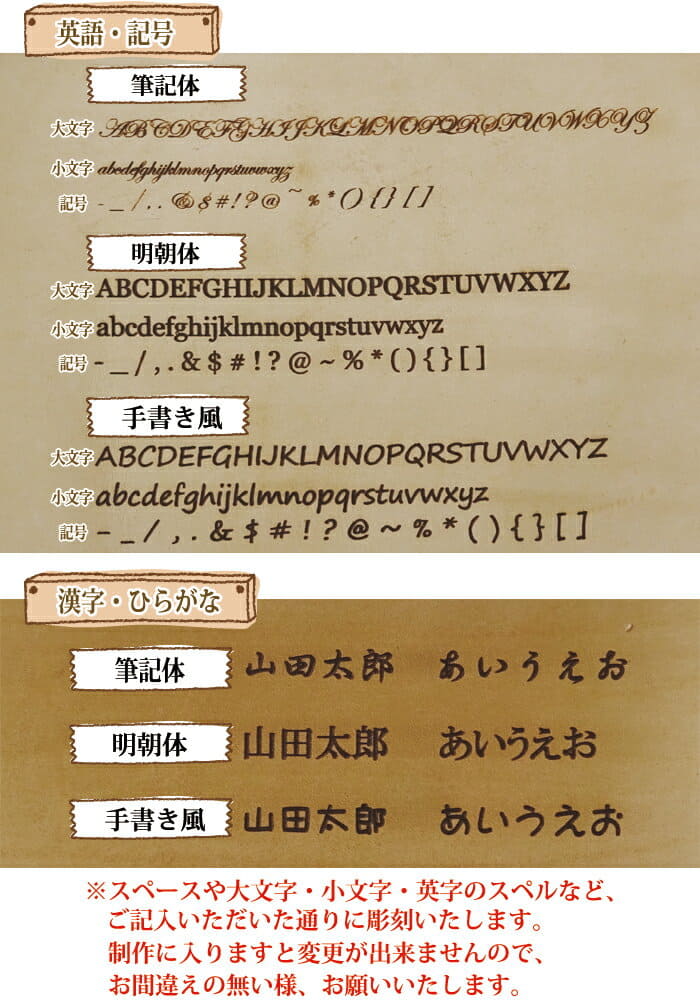 英語・記号
筆記体
大文字 ABCDEFGHIJKLMNOPQRSTUVWXYZ
小文字 abcdefghijklmnopqrstuvwxyz
記号 - _ / , . & $ # ! ? @ ~ % * ( ) { } [ ]
明朝体
大文字 ABCDEFGHIJKLMNOPQRSTUVWXYZ
小文字 abcdefghijklmnopqrstuvwxyz
記号 - _ / , . & $ # ! ? @ ~ % * ( ) { } [ ]
手書き風
大文字 ABCDEFGHIJKLMNOPQRSTUVWXYZ
小文字 abcdefghijklmnopqrstuvwxyz
記号 - _ / , . & $ # ! ? @ ~ % * ( ) { } [ ]
漢字・ひらがな
筆記体 山田太郎 あいうえお
明朝体 山田太郎 あいうえお
手書き風 山田太郎 あいうえお
※スペースや大文字・小文字・英字のスペルなど、
ご記入いただいた通りに彫刻いたします。
制作に入りますと変更が出来ませんので、
お間違えの無い様、お願いいたします。